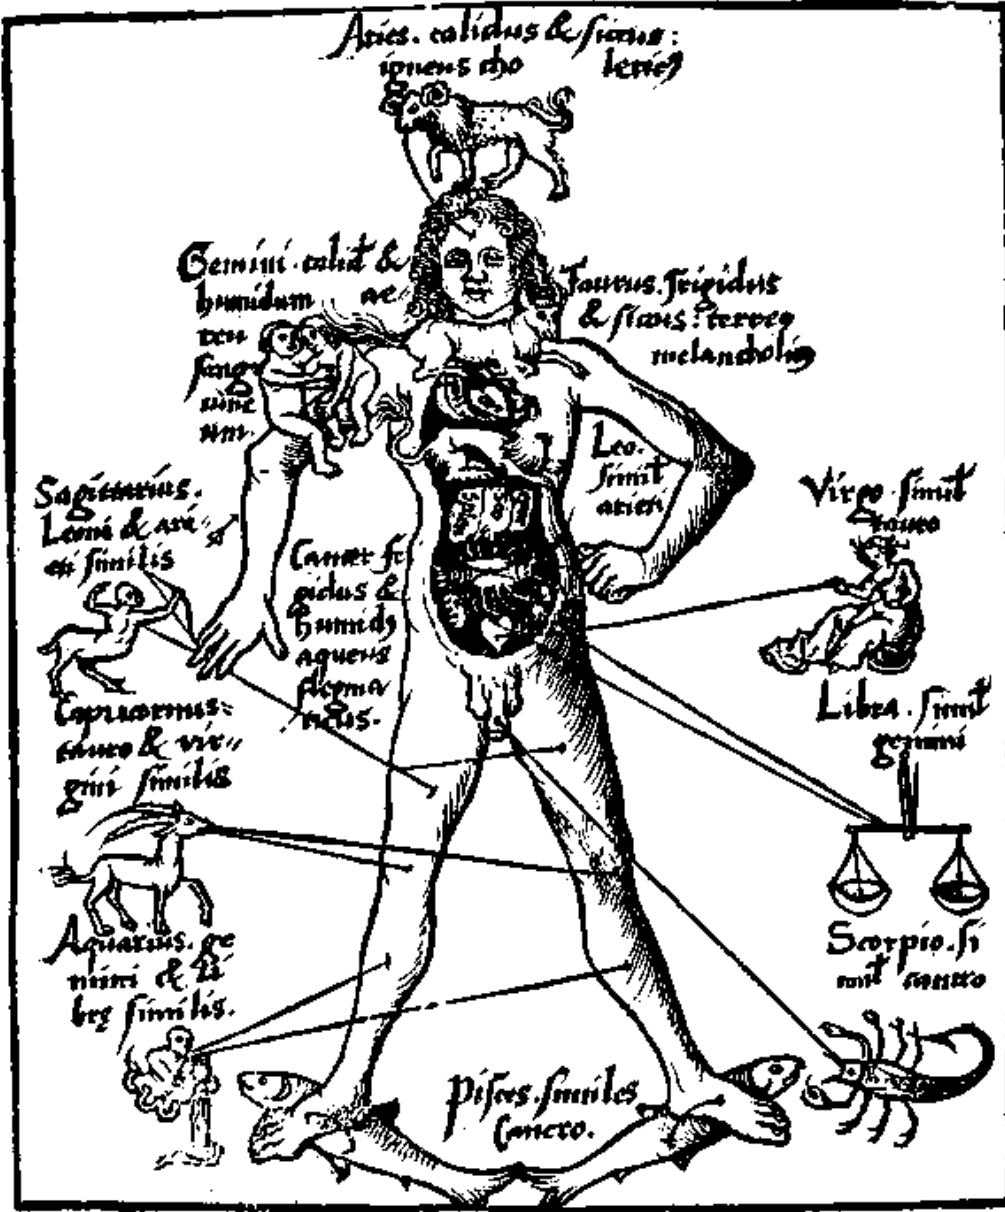 Aries. calidus & siccus:
igneus cho lericꝯ
Gemini. calid̄ &
humidum ae
reu
sang
uine
um.
Taurus. frigidus
& siccus: terreꝯ
melancholicꝯ
Leo.
simil̄
arieti
Sagittarius.
Leoni & ari
eti similis
Cancer fri
gidus &
humidꝯ
aqueus
flegma
ticus.
Virgo. simil̄
tauro
Capricornus:
tauro & vir
gini similis
Libra. simil̄
gemini
Aquarius. ge
mini & li
brę similis.
Scorpio. si
mil̄ cancro
Pisces. similes
Cancro.